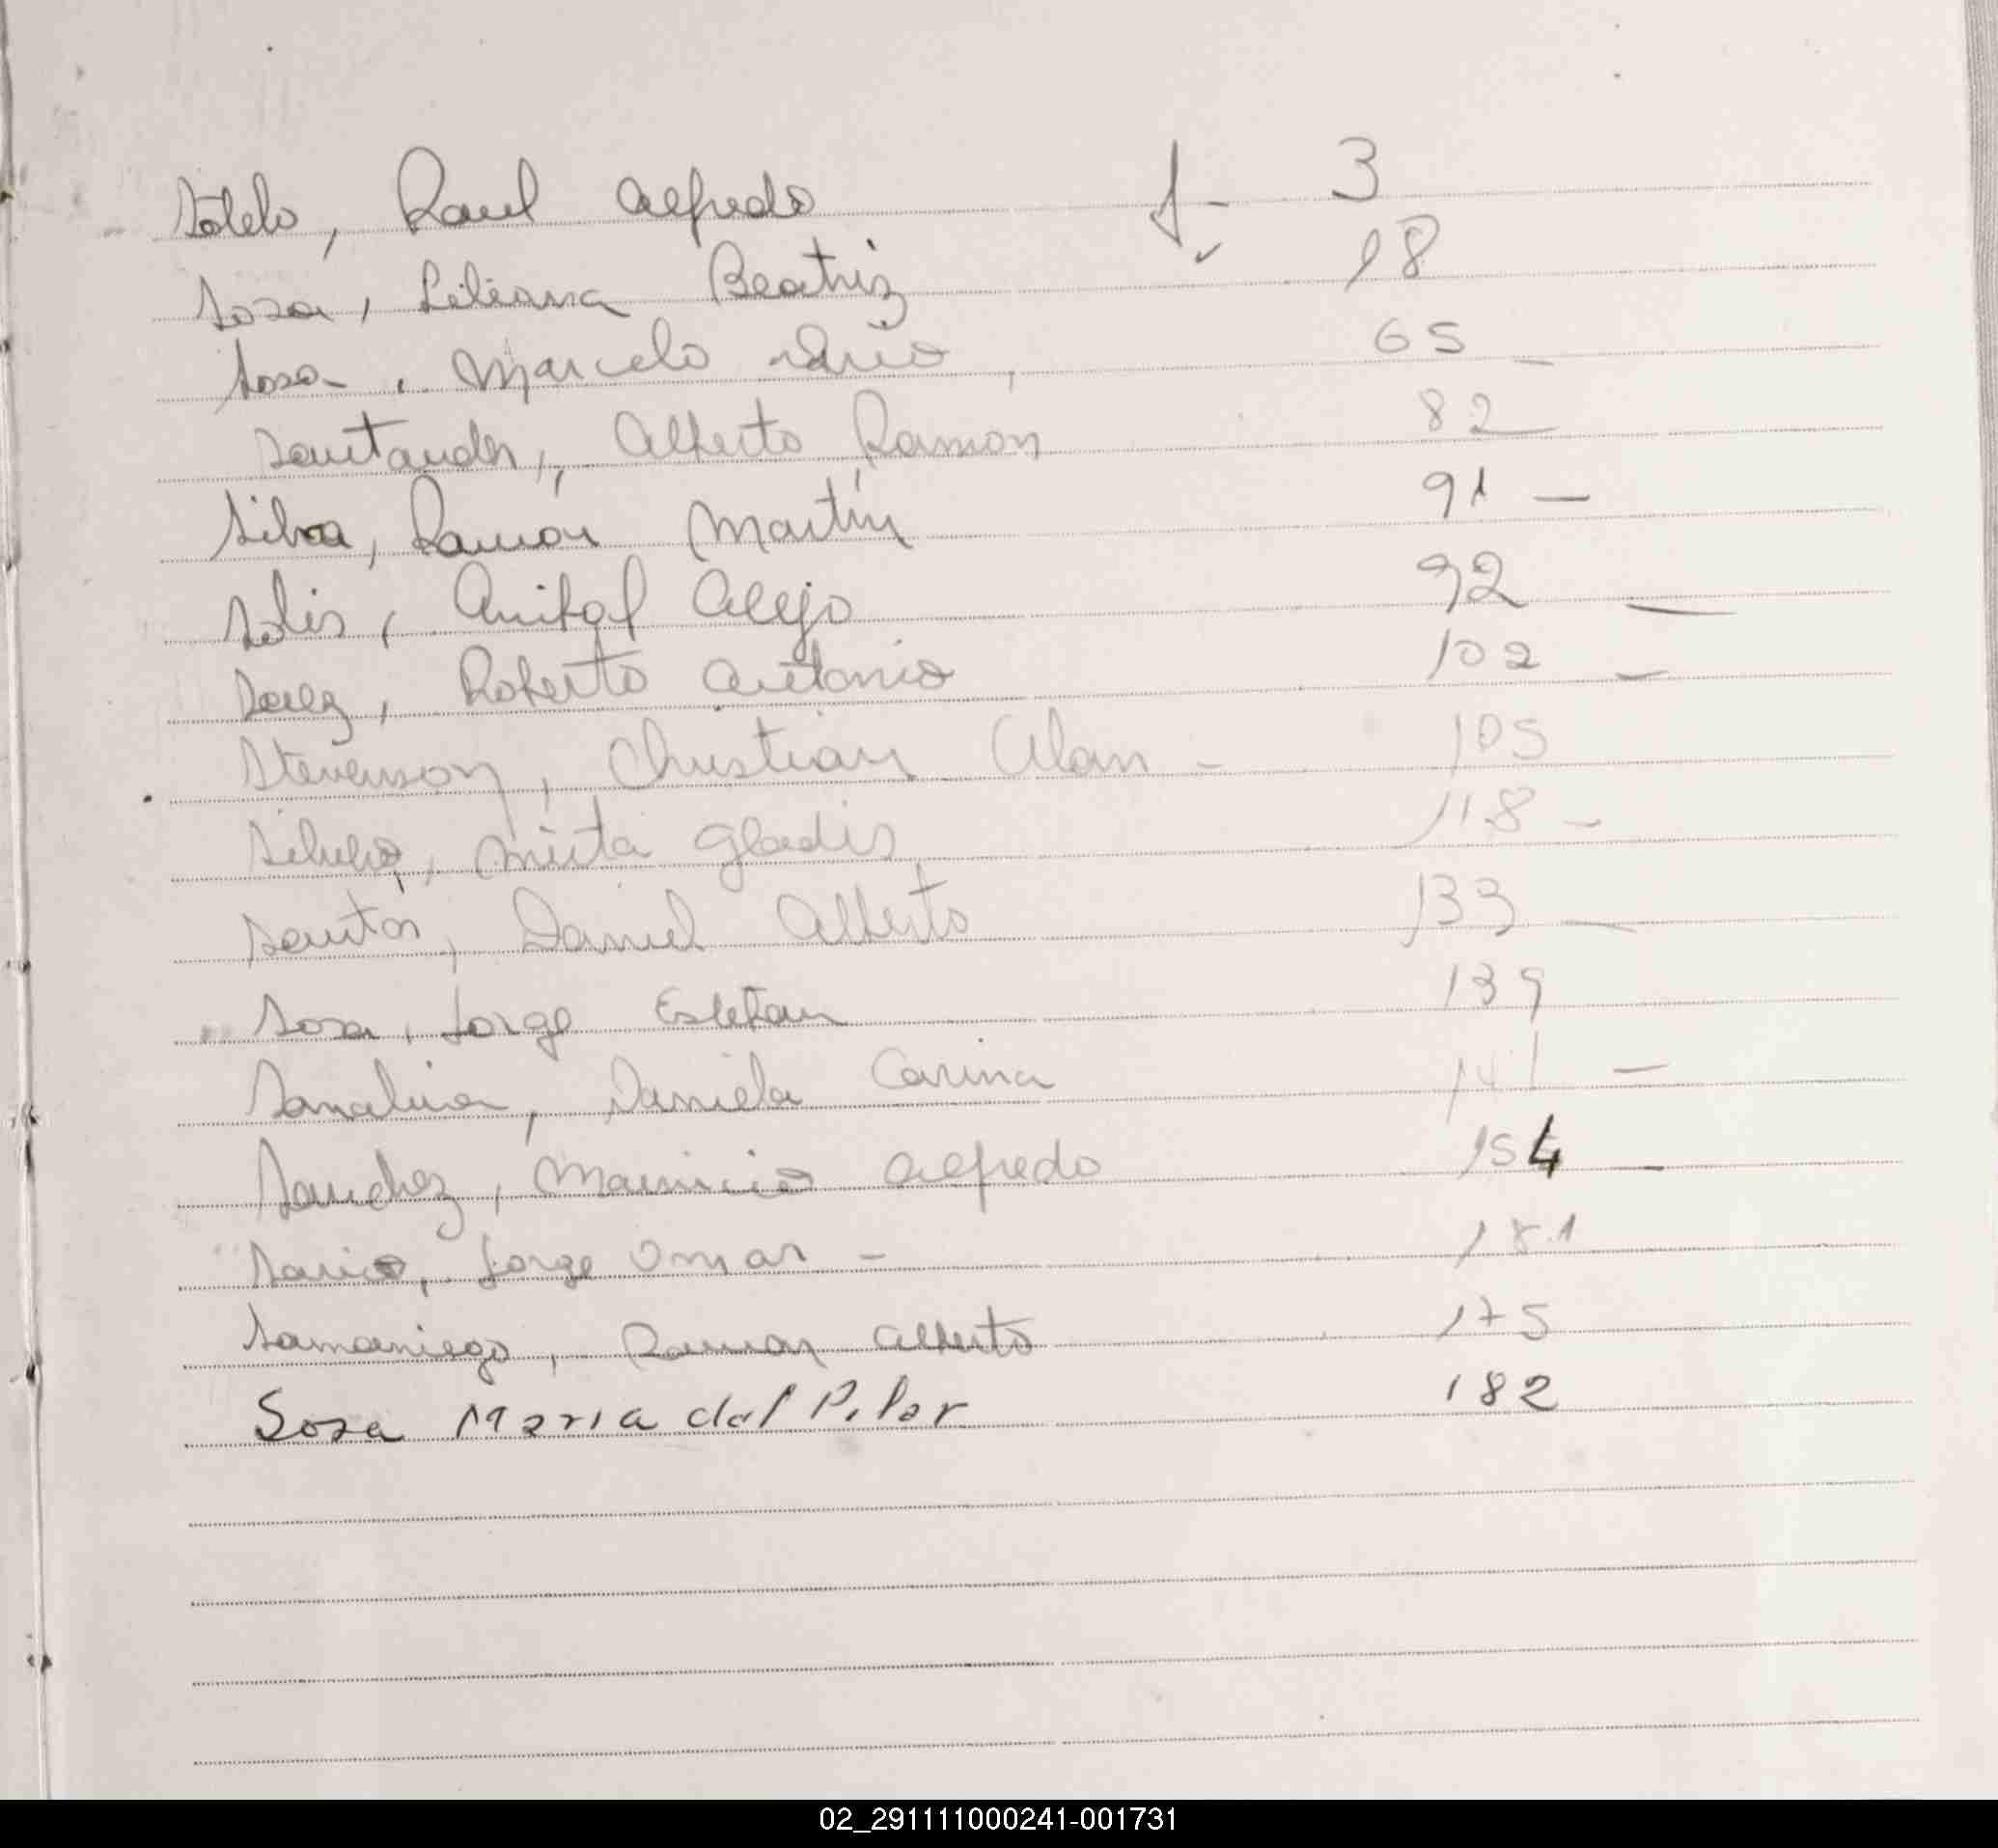 Sotelo, Raul Alfredo f- 3
Sosa, Liliana Beatriz 18
Sosa, Marcelo 65 -
Santander, Alberto Ramon 82 -
Silva, Ramón Martín 91 -
Solis, Anibal Alejo 92 -
Saez, Roberto Antonio 102 -
Stevenson, Christian Alan - 105
Mirta Gladis 118 -
Santos, Daniel Alberto 133 -
Sosa, Jorge Esteban 139
Sanabria, Daniela Carina 141 -
Sanchez, Mauricio Alfredo 154 -
Jorge Omar - 181
Samaniego, Ramon Alberto 175
Sosa Maria del Pilar 182
02_291111000241-001731